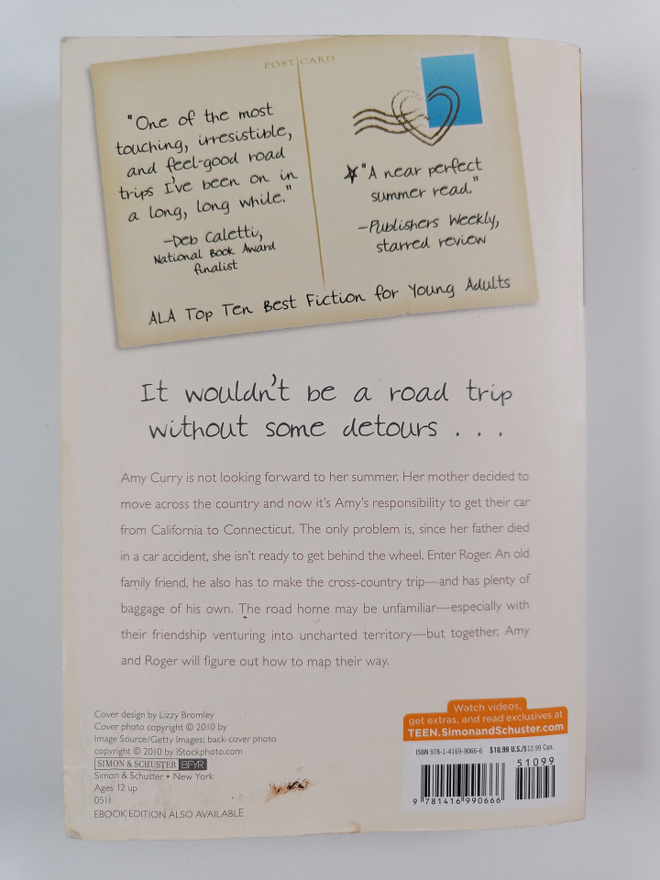 POST CARD
"One of the most
touching, irresistible,
and feel-good road
trips I've been on in
a long, long while."
—Deb Caletti,
National Book Award
finalist
"A near perfect
summer read."
—Publishers Weekly,
starred review
ALA Top Ten Best Fiction for Young Adults
It wouldn't be a road trip
without some detours . . .
Amy Curry is not looking forward to her summer. Her mother decided to
move across the country and now it's Amy's responsibility to get their car
from California to Connecticut. The only problem is, since her father died
in a car accident, she isn't ready to get behind the wheel. Enter Roger. An old
family friend, he also has to make the cross-country trip—and has plenty of
baggage of his own. The road home may be unfamiliar—especially with
their friendship venturing into uncharted territory—but together, Amy
and Roger will figure out how to map their way.
Cover design by Lizzy Bromley
Cover photo copyright © 2010 by
Image Source/Getty Images; back-cover photo
copyright © 2010 by iStockphoto.com
SIMON & SCHUSTER BFYR
Simon & Schuster • New York
Ages 12 up
0511
EBOOK EDITION ALSO AVAILABLE
Watch videos,
get extras, and read exclusives at
TEEN.SimonandSchuster.com
ISBN 978-1-4169-9066-6 $10.99 U.S./$12.99 Can.
51099
9 781416 990666